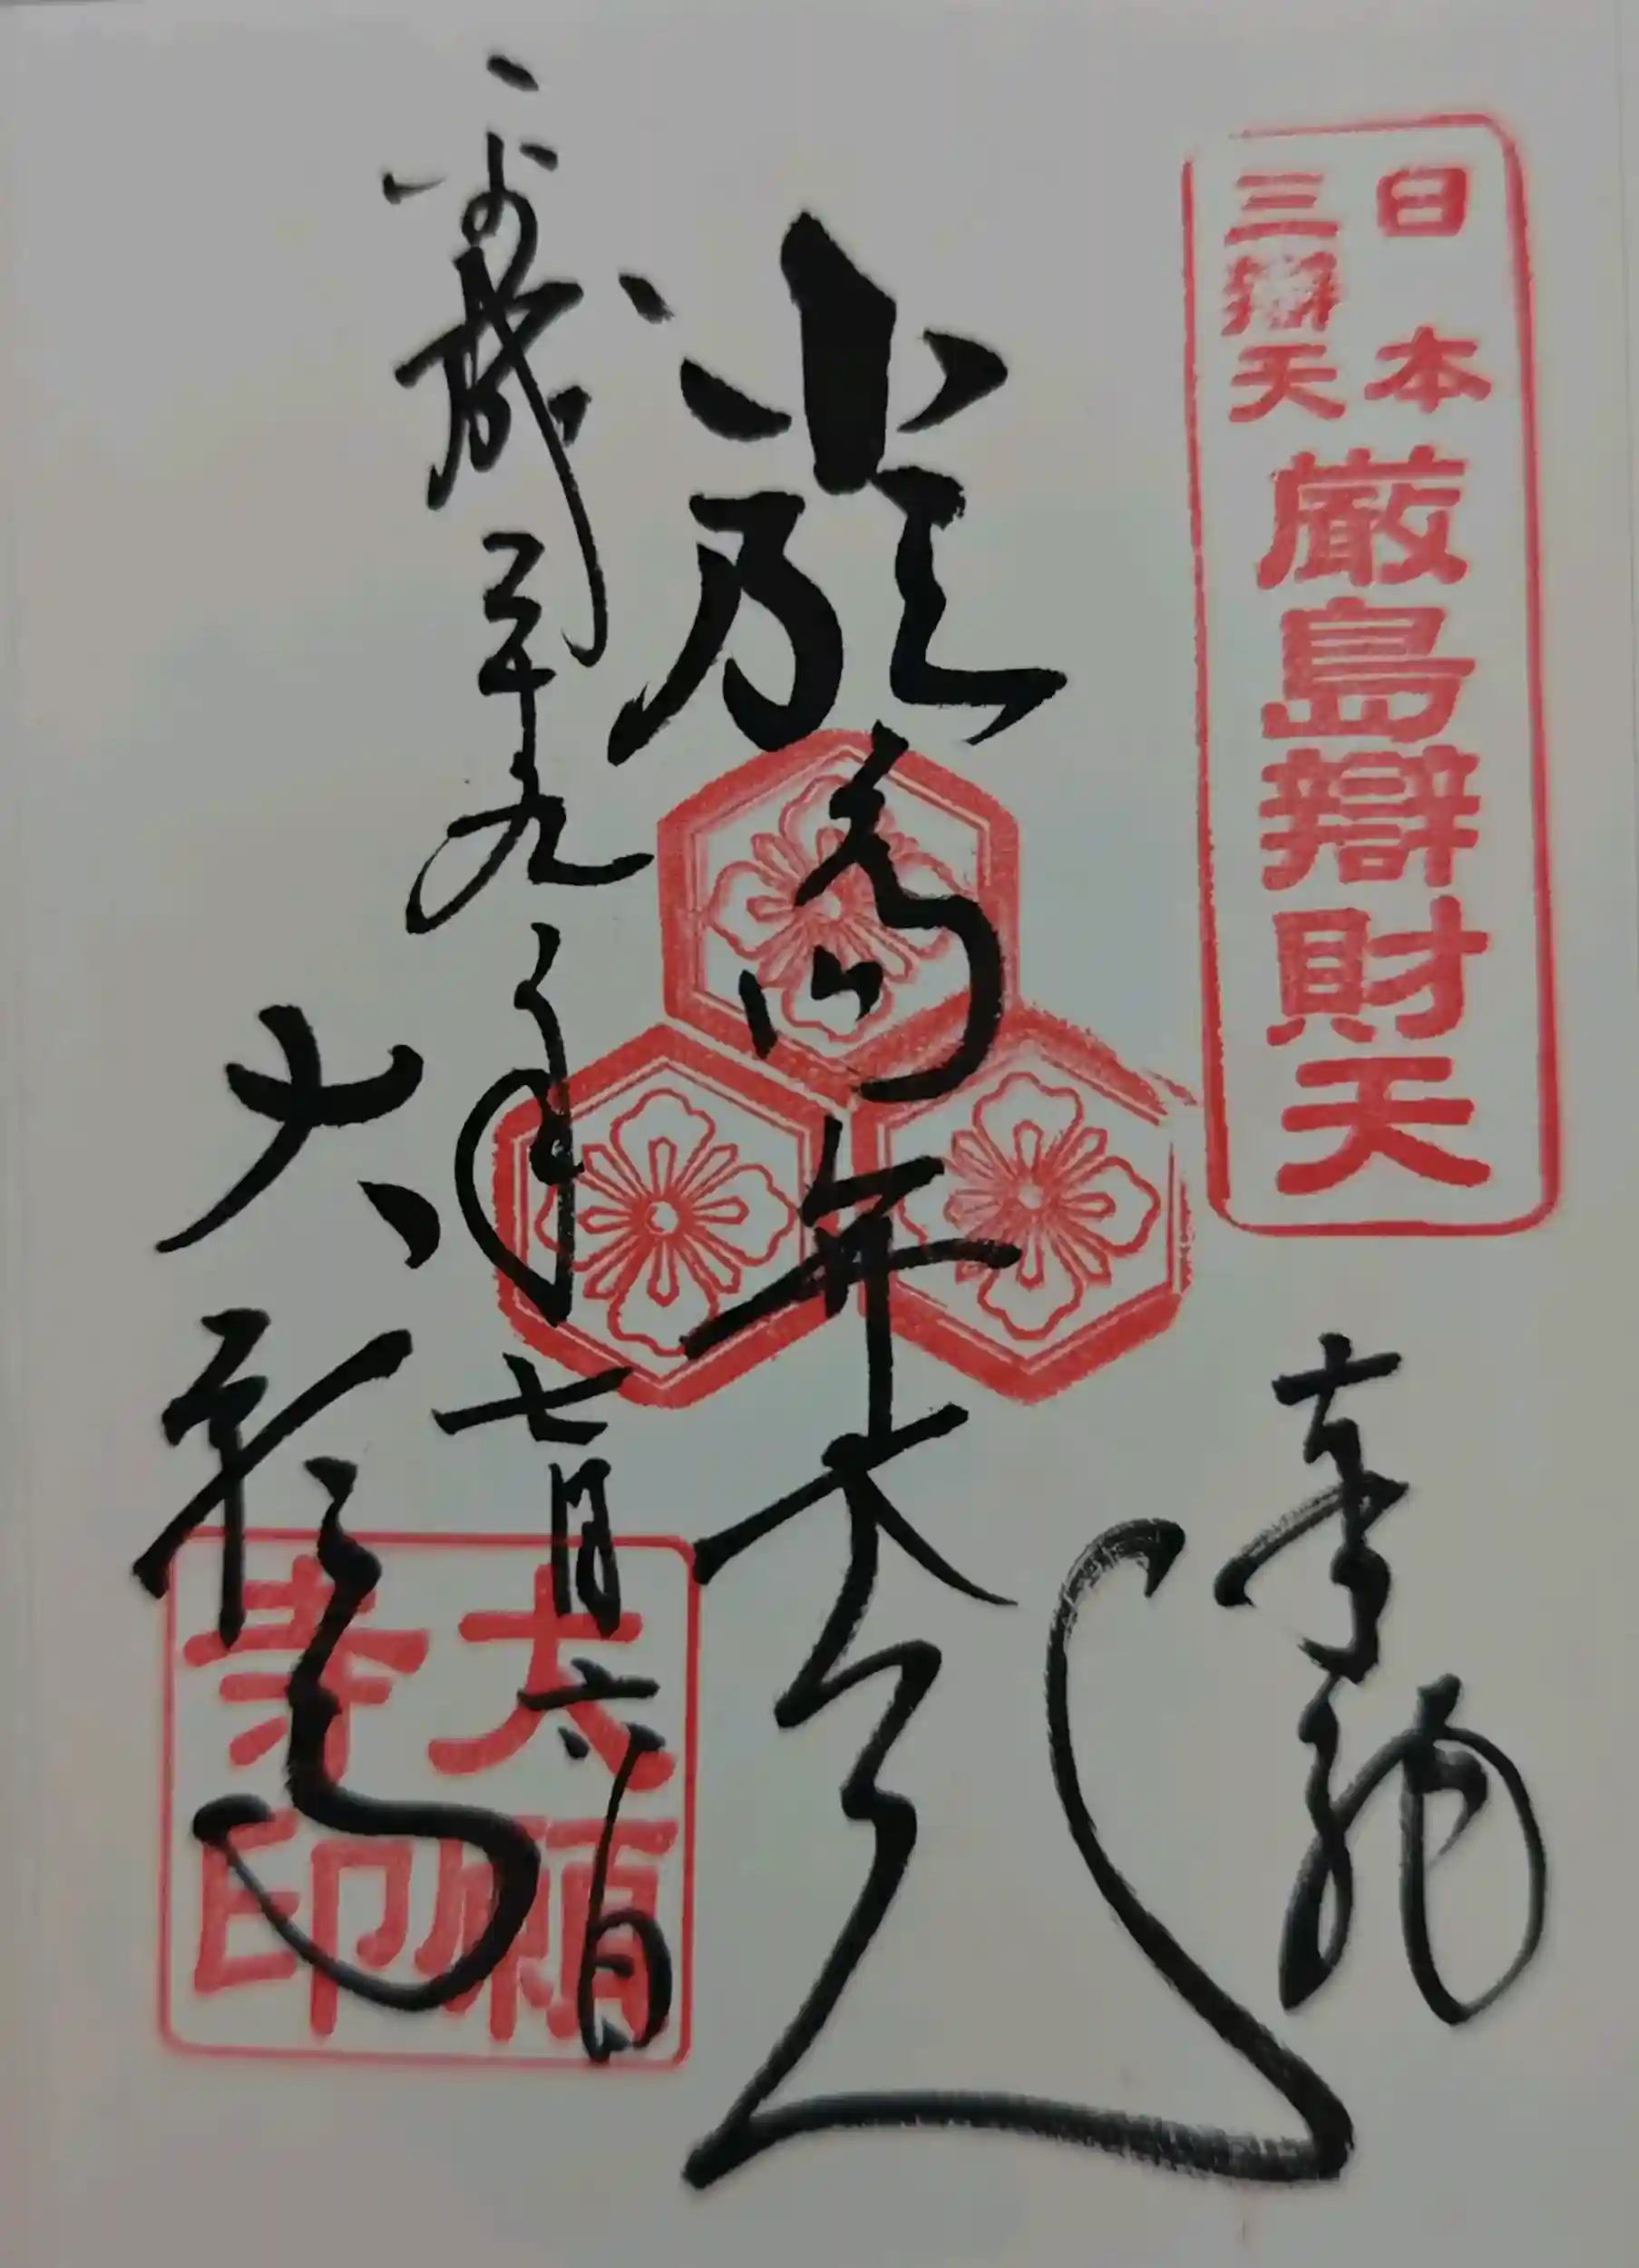 日本
三辯天
厳島辯財天
奉拝
厳島弁才天
平成二十九年七月六日
大願寺
大願
寺印